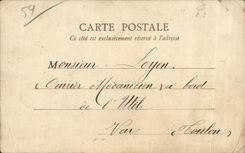 59
CARTE POSTALE
Ce côté est exclusivement réservé à l'adresse
Monsieur Loyen.
Ouvrier Mécanicien à bord
de l'Utile
Var Toulon